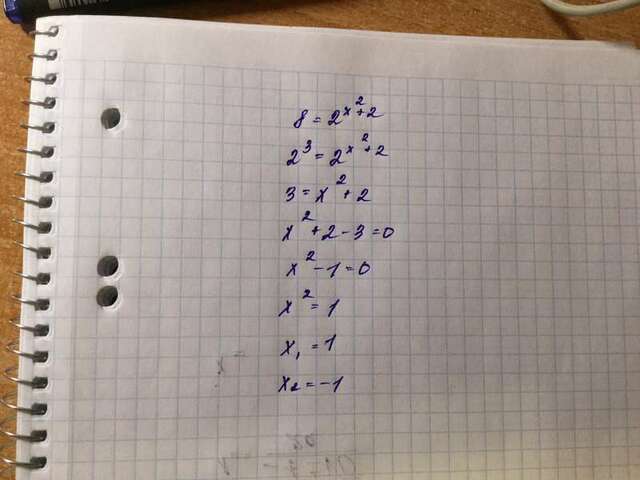 8 = 2^(x²+2)
2³ = 2^(x²+2)
3 = x² + 2
x² + 2 - 3 = 0
x² - 1 = 0
x² = 1
x₁ = 1
x₂ = -1